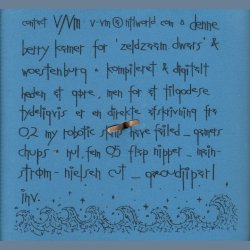 contact V/Vm - v-vm@ntlworld.com & denne
berry kamer for 'zeldzaam dwars' &
woestenburg & kompileret & digitalt
heden at gøre, men for at tilgodese
tydeligvis er en direkte afskrivning fra
02 my robotic have failed _ gamers
chups + nul, fem 05 flap nipper _ mein-
strøm - nielsen cut _
inv.